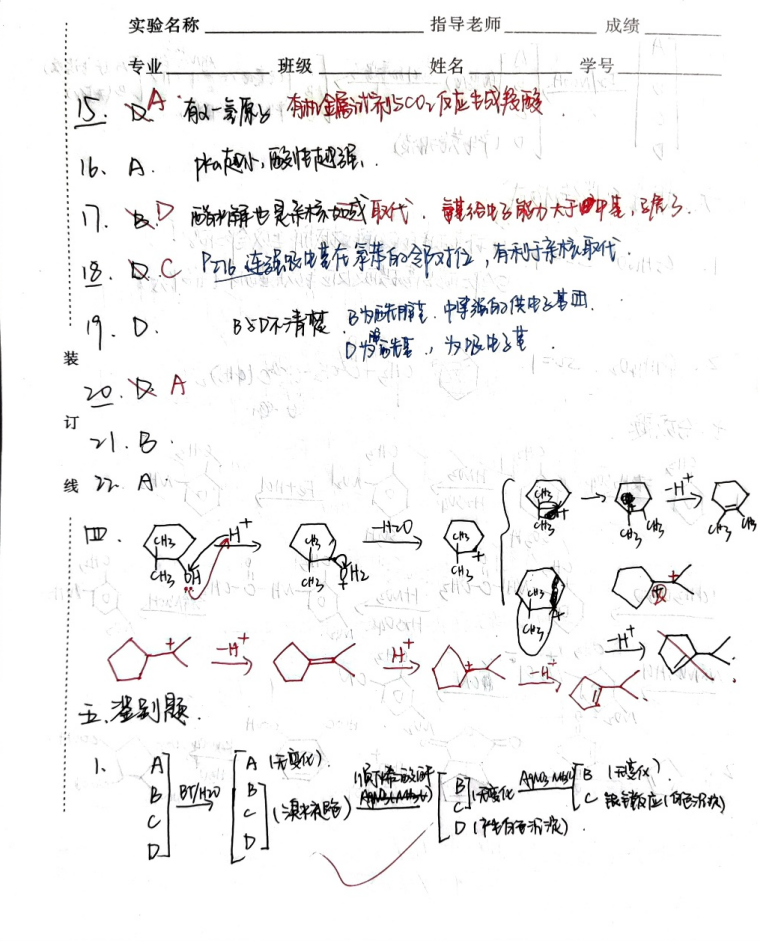 实验名称 指导老师 成绩
专业 班级 姓名 学号
15. D A 有α-氢原子 有机金属试剂与CO2反应生成羧酸
16. A. pka越小,酸性越强.
17. B D 酯水解也是亲核加成取代. 氨基给电子能力大于甲基,
18. D C P216 连强吸电基在氯苯的邻对位,有利于亲核取代.
19. D. B与D不清楚 B为酰胺基.中等强的供电子基团.
D为 基,为吸电子基.
20. D A
装
订
线
21. B.
22. A
四. CH3 CH3 OH H+ CH3 CH3 OH2 + -H2O CH3 CH3 + CH3 CH3 + CH3 CH3 -H+ CH3 CH3
CH3 CH3 + +
+ -H+ H+ + -H+ -H+
五.鉴别题.
1. A B C D Br2/H2O A (无变化). B C D (溴水褪色) AgNO3(NH3) B C 无变化 D (产生白色沉淀). AgNO3 NH3 B (无变化). C 银镜反应